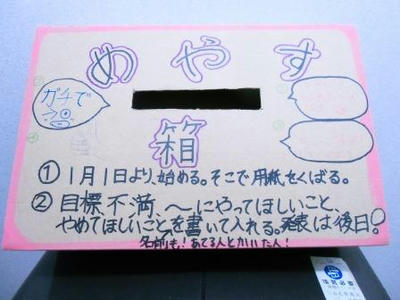 めやす
箱
ガチで
① 1月1日より、始める。そこで用紙をくばる。
② 目標、不満、〜にやってほしいこと、
やめてほしいことを書いて入れる。発表は後日!
名前も!あてる人とかいたん!